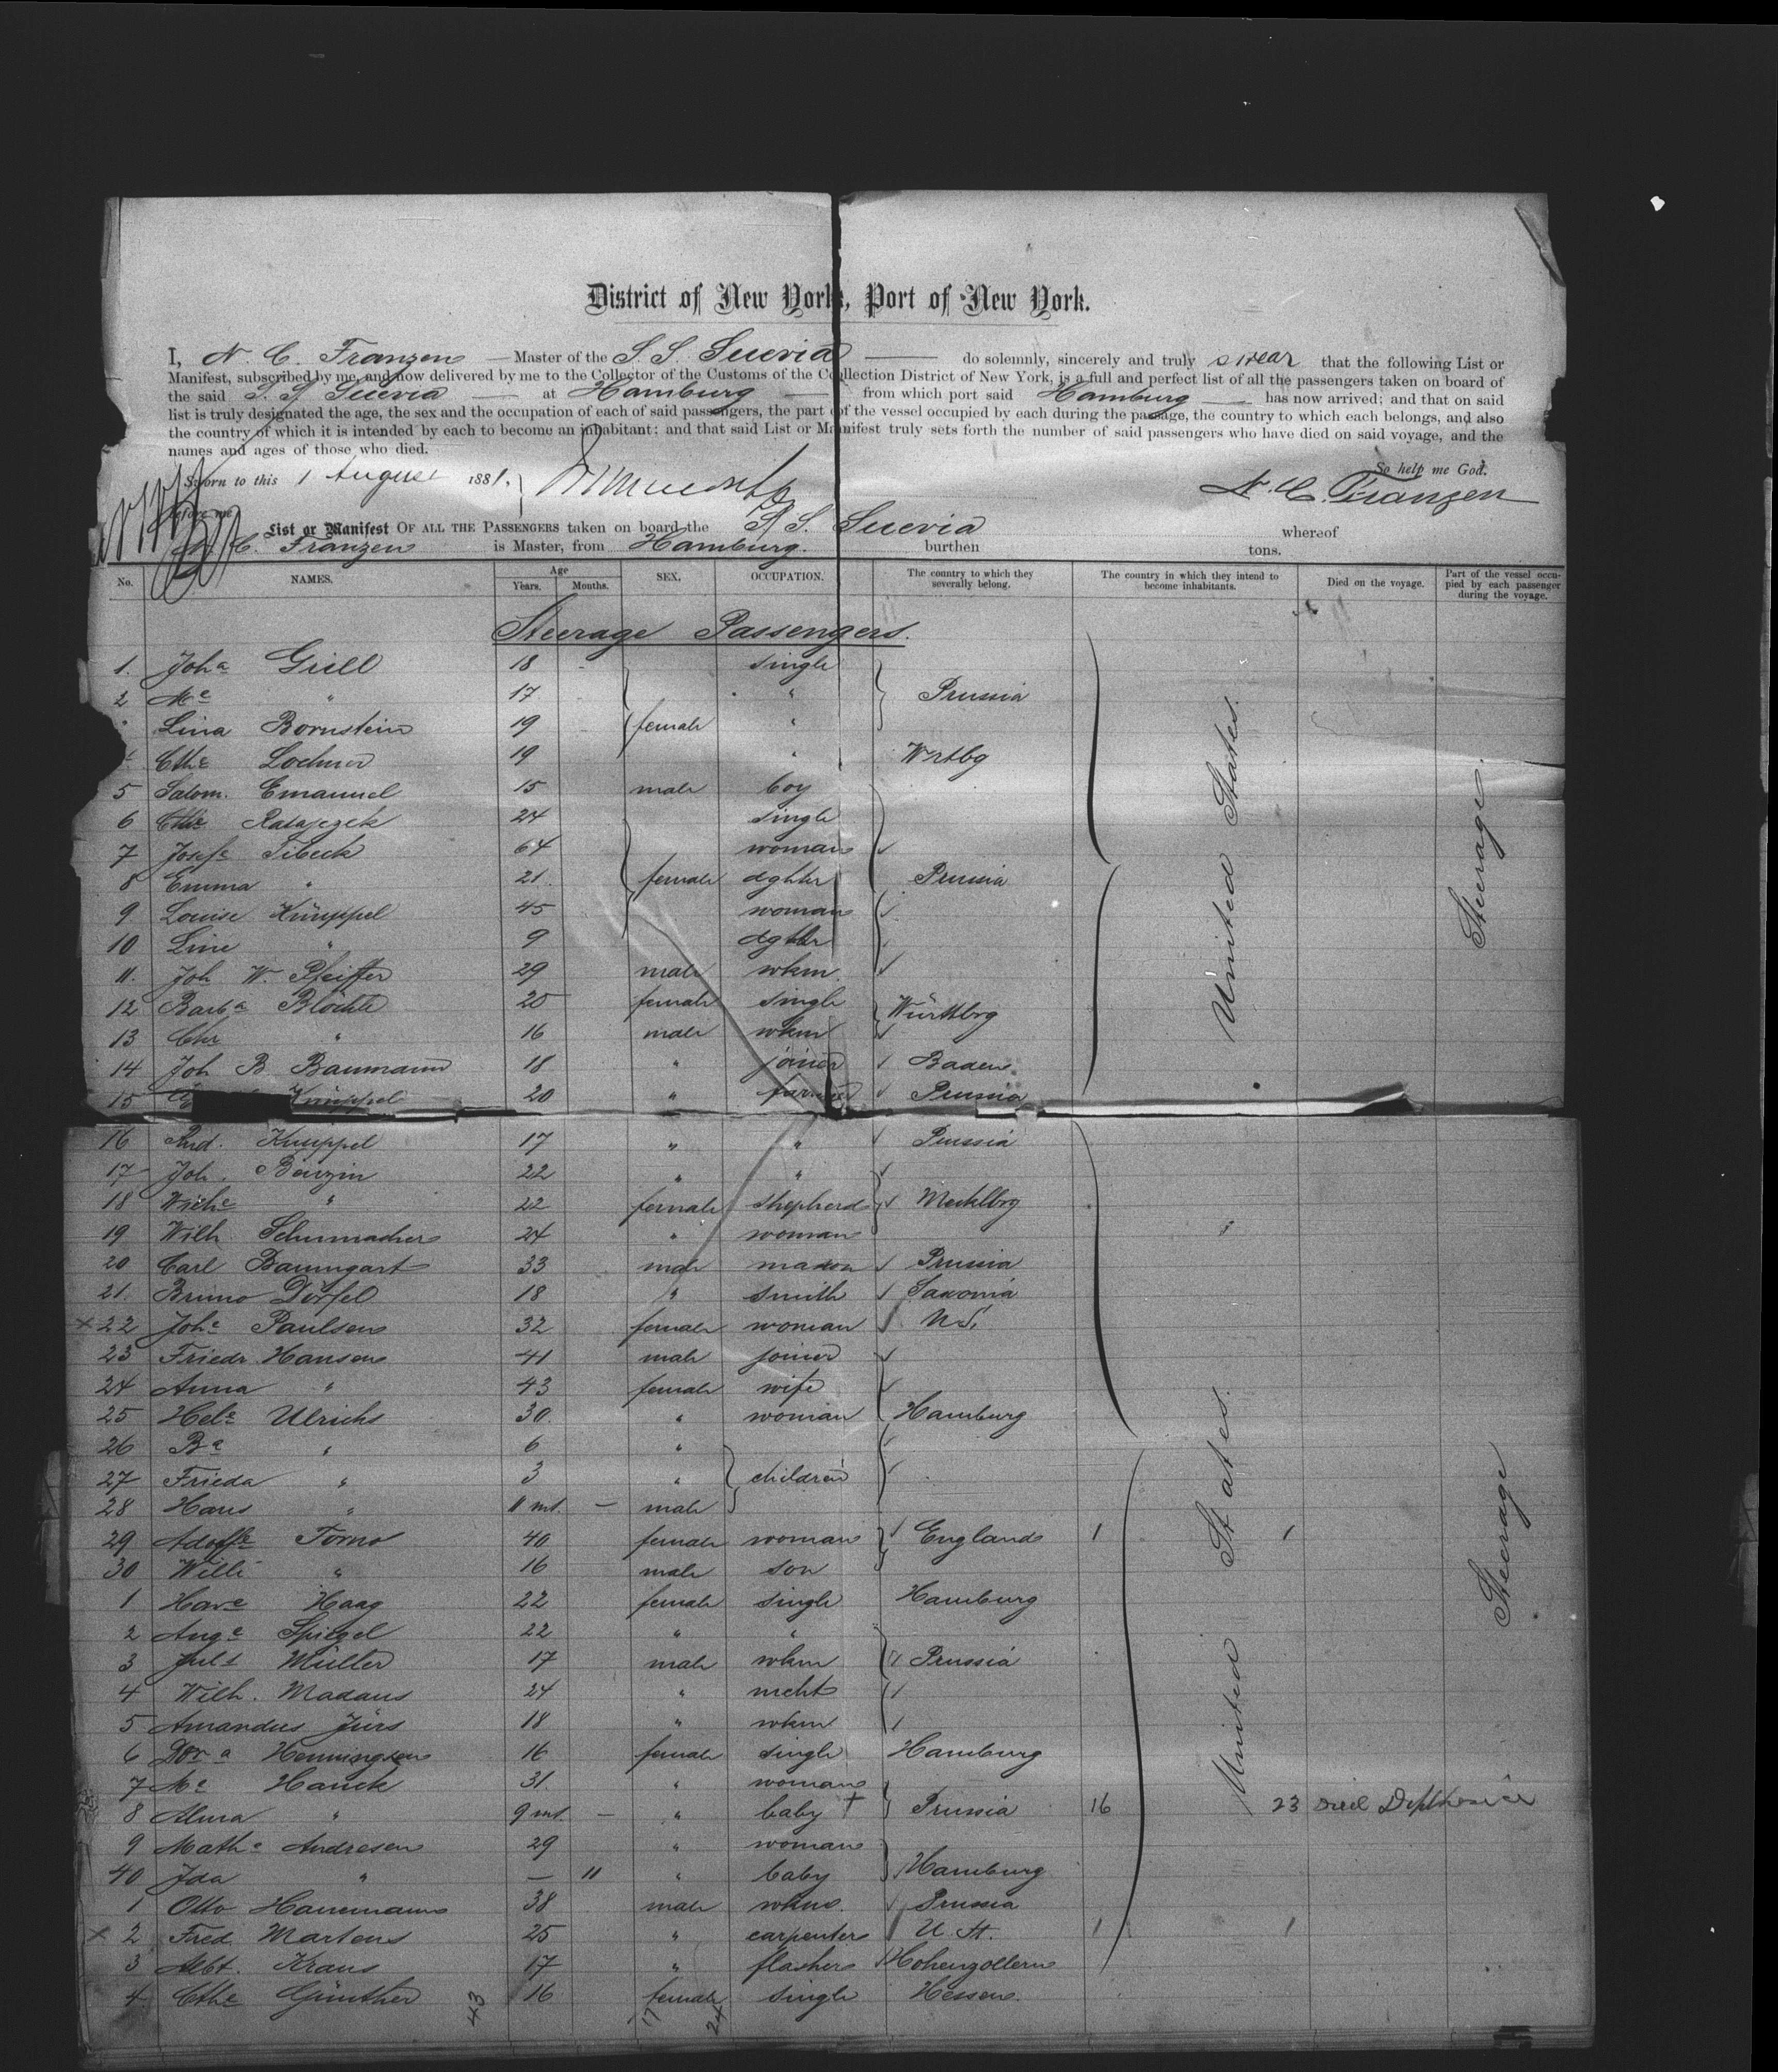 District of New York, Port of New York.
I, N. C. Franzen — Master of the S. S. Suevia — do solemnly, sincerely and truly swear that the following List or
Manifest, subscribed by me, and now delivered by me to the Collector of the Customs of the Collection District of New York, is a full and perfect list of all the passengers taken on board of
the said S. S. Suevia — at Hamburg — from which port said Hamburg — has now arrived; and that on said
list is truly designated the age, the sex and the occupation of each of said passengers, the part of the vessel occupied by each during the passage, the country to which each belongs, and also
the country of which it is intended by each to become an inhabitant; and that said List or Manifest truly sets forth the number of said passengers who have died on said voyage, and the
names and ages of those who died.
So help me God.
Sworn to this 1 August 1881.
N. C. Franzen
before me
List or Manifest OF ALL THE PASSENGERS taken on board the S. S. Suevia whereof
N. C. Franzen is Master, from Hamburg. burthen tons.
No. NAMES. Age Years. Months. SEX. OCCUPATION. The country to which they severally belong. The country in which they intend to become inhabitants. Died on the voyage. Part of the vessel occupied by each passenger during the voyage.
Steerage Passengers.
1. Joha Grell 18 - single
2 Me " 17 - " Prussia
Lina Bornstein 19 - female "
Cthe Lochner 19 " Wrtbg
5 Salom. Emanuel 15 male boy
6 Cthe Ratajczek 24 single
7 Josefe Tibeck 64 woman
8 Emma " 21. female dghtr Prussia
9 Louise Knüppel 45 woman
10 Line " 9 dghtr
11. Joh W. Pfeiffer 29 male wkm.
12 Barba Blöchle 20 female single Württbrg
13 Chr " 16 male wkm
14 Joh B. Baumann 18 " joiner Baden.
15 Knüppel 20 " farmer Prussia
United States.
Steerage.
16 Rud. Knuppel 17 " " Prussia
17 Joh. Benzin 22 " "
18 Wiche " 22 female shepherd Mecklbrg
19 Wilh. Schumacher 24 " woman
20 Carl Baumgart 33 male mason Prussia
21. Bruno Dörfel 18 " smith Saxonia
x 22 Johe Paulsen 32 female woman U.S.
23 Friedr. Hansen 41 male joiner
24 Anna " 43 female wife
25 Hele Ulrichs 30. " woman Hamburg
26 Be " 6 "
27 Frieda " 3 " children
28 Hans " 11 mt. — male
29 Adolfe Torno 40 female woman England 1 1
30 Willi " 16 male son
1 Have Haag 22 female single Hamburg
2 Auge Spiegel 22 " "
3 Juls Müller 17 male wkm Prussia
4 Wilh. Madaus 24 " mcht
5 Amandus Jürs 18 " wkm
6 Dora Henningsen 16 female single Hamburg
7 Me Hauck 31. " woman
8 Alma " 9 mt. — " baby † Prussia 16 23 Died Diphtheria
9 Mathe Andresen 29 " woman
40 Ida " — 11 " baby Hamburg
1 Otto Hannemann 38 male wkm. Prussia
x 2 Fred Martens 25 " carpenter U. St. 1 1
3 Albt. Kraus 17 " flasher Hohenzollern
4 Cthe Günther 16 female single Hessen.
United States.
Steerage
43 17 24